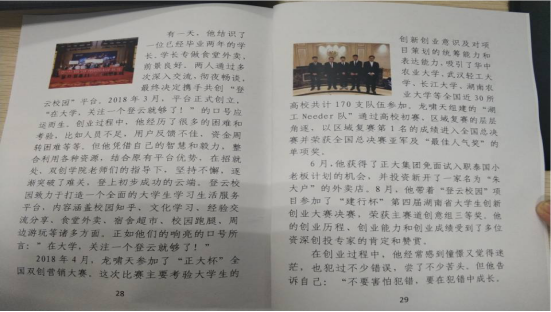 有一天，他结识了
一位已经毕业两年的学
长，学长专做食堂外卖，
前景良好。两人通过多
次深入交流，彻夜畅谈，
最终决定携手共创“登
云校园”平台。2018年3月，平台正式创立，
“在大学，关注一个登云就够了！”的口号应
运而生。创业过程中，他经历了很多的困难和
考验，比如人员不足，用户反馈不佳，资金周
转困难等等。但他凭借自己的智慧和毅力，整
合利用各种资源，结合原有平台优势，在招就
处、双创学院老师们的指导下，坚持不懈，逐
渐突破了难关，登上初步成功的云端。登云校
园致力于打造一个全面的大学生学习生活服务
平台，内容涵盖校园知乎、文化学习、经验交
流分享、食堂外卖、宿舍超市、校园跑腿、周
边游玩等诸多方面，正如他们的响亮的口号所
言：“在大学，关注一个登云就够了！”
2018年4月，龙啸天参加了“正大杯”全
国双创营销大赛。这次比赛主要考验大学生的
28
创新创业意识及对项
目策划的统筹能力和
表达能力，吸引了华中
农业大学、武汉轻工大
学、长江大学、湖南农
业大学等全国近10所
高校共计170支队伍参加。龙啸天组建的“湖
工Needer队”通过高校初赛、区域复赛的层层
角逐，以区域复赛第1名的成绩进入全国总决
赛并荣获全国总决赛亚军及“最佳人气奖”的
单项奖。
6月，他获得了正大集团免面试入职泰国小
老板计划的机会，并投资新开了一家名为“朱
大户”的外卖店。8月，他带着“登云校园”项
目参加了“建行杯”第四届湖南省大学生创新
创业大赛决赛，荣获主赛道创意组三等奖。他
的创业历程，创业能力和创业成绩受到了多位
资深创投专家的肯定和赞赏。
在创业过程中，他经常感到懵懂又觉得迷
茫，也犯过不少错误，尝了不少苦头。但他告
诉自己：“不要害怕犯错，要在犯错中成长。
29